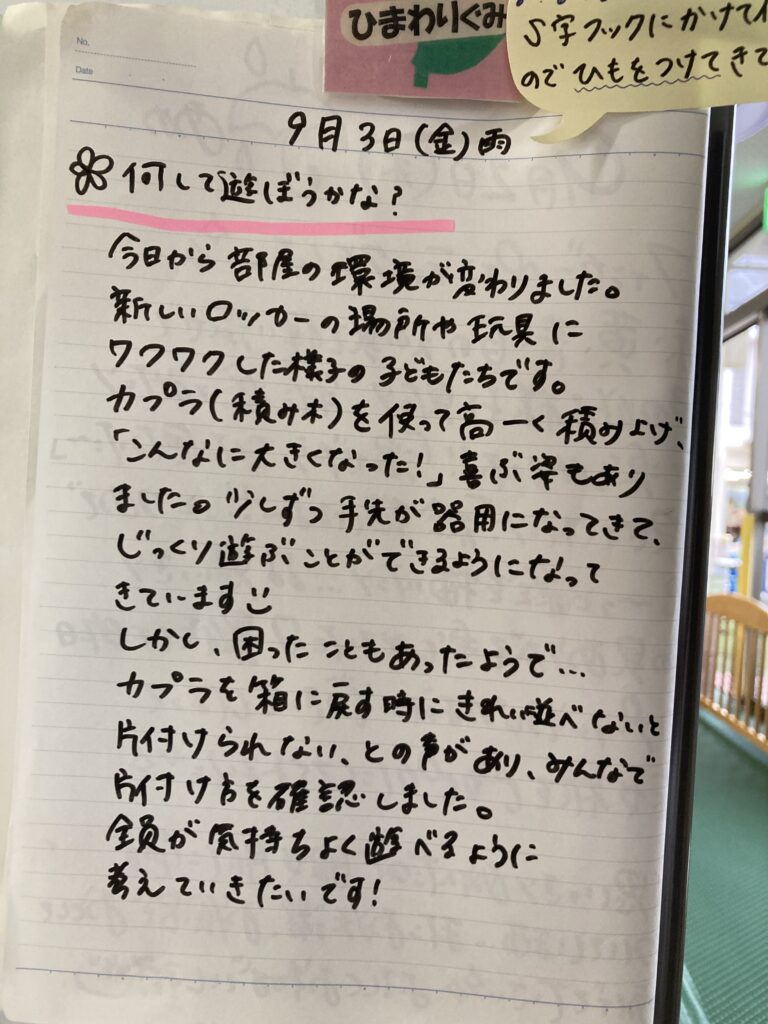 No.
Date
ひまわりぐみ
S字フックにかけて
のでひもをつけてきて
9月3日(金)雨
何して遊ぼうかな?
今日から部屋の環境が変わりました。
新しいロッカーの場所や玩具に
ワクワクした様子の子どもたちです。
カプラ(積み木)を使って高ーく積み上げ、
「こんなに大きくなった!」喜ぶ姿もあり
ました。少しずつ手先が器用になってきて、
じっくり遊ぶことができるようになって
きています
しかし、困ったこともあったようで…
カプラを箱に戻す時にきれい並べないと
片付けられない、との声があり、みんなで
片付け方を確認しました。
全員が気持ちよく遊べるように
考えていきたいです!